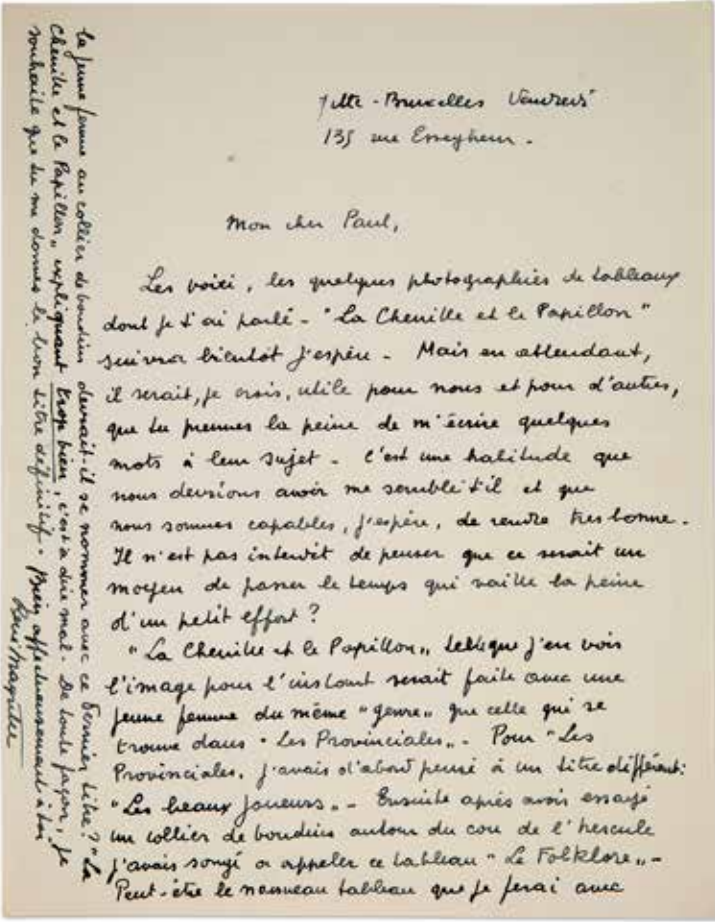 Jette-Bruxelles Vendredi
135 rue Esseghem.
Mon cher Paul,
Les voici, les quelques photographies de tableaux
dont je t'ai parlé - "La Chenille et le Papillon"
suivra bientôt j'espère - Mais en attendant,
il serait, je crois, utile pour nous et pour d'autres,
que tu prennes la peine de m'écrire quelques
mots à leur sujet - C'est une habitude que
nous devrions avoir me semble t'il et que
nous sommes capables, j'espère, de rendre très bonne.
Il n'est pas interdit de penser que ce serait un
moyen de passer le temps qui vaille la peine
d'un petit effort ?
"La Chenille et le Papillon„ telle que j'en vois
l'image pour l'instant serait faite avec une
jeune femme du même "genre„ que celle qui se
trouve dans "Les Provinciales„. Pour "Les
Provinciales. j'avais d'abord pensé à un titre différent:
"Les beaux joueurs„ - Ensuite après avoir essayé
un collier de boudins autour du cou de l'hercule
j'avais songé à appeler ce tableau "Le Folklore„ -
Peut-être le nouveau tableau que je ferai avec
la jeune femme au collier de boudins devrait-il se nommer avec ce dernier titre ? "La
Chenille et le Papillon„ expliquant trop bien, c'est à dire mal. De toute façon, je
souhaite que tu me donnes le bon titre définitif. Bien affectueusement à toi
René Magritte